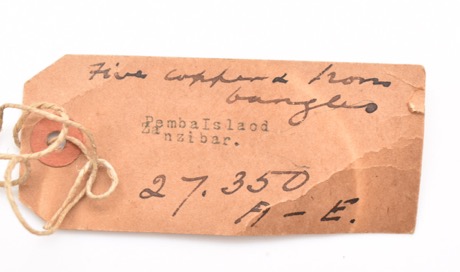 Five copper & Iron
bangles
PembaIslaod
Zanzibar.
27.350
A - E.